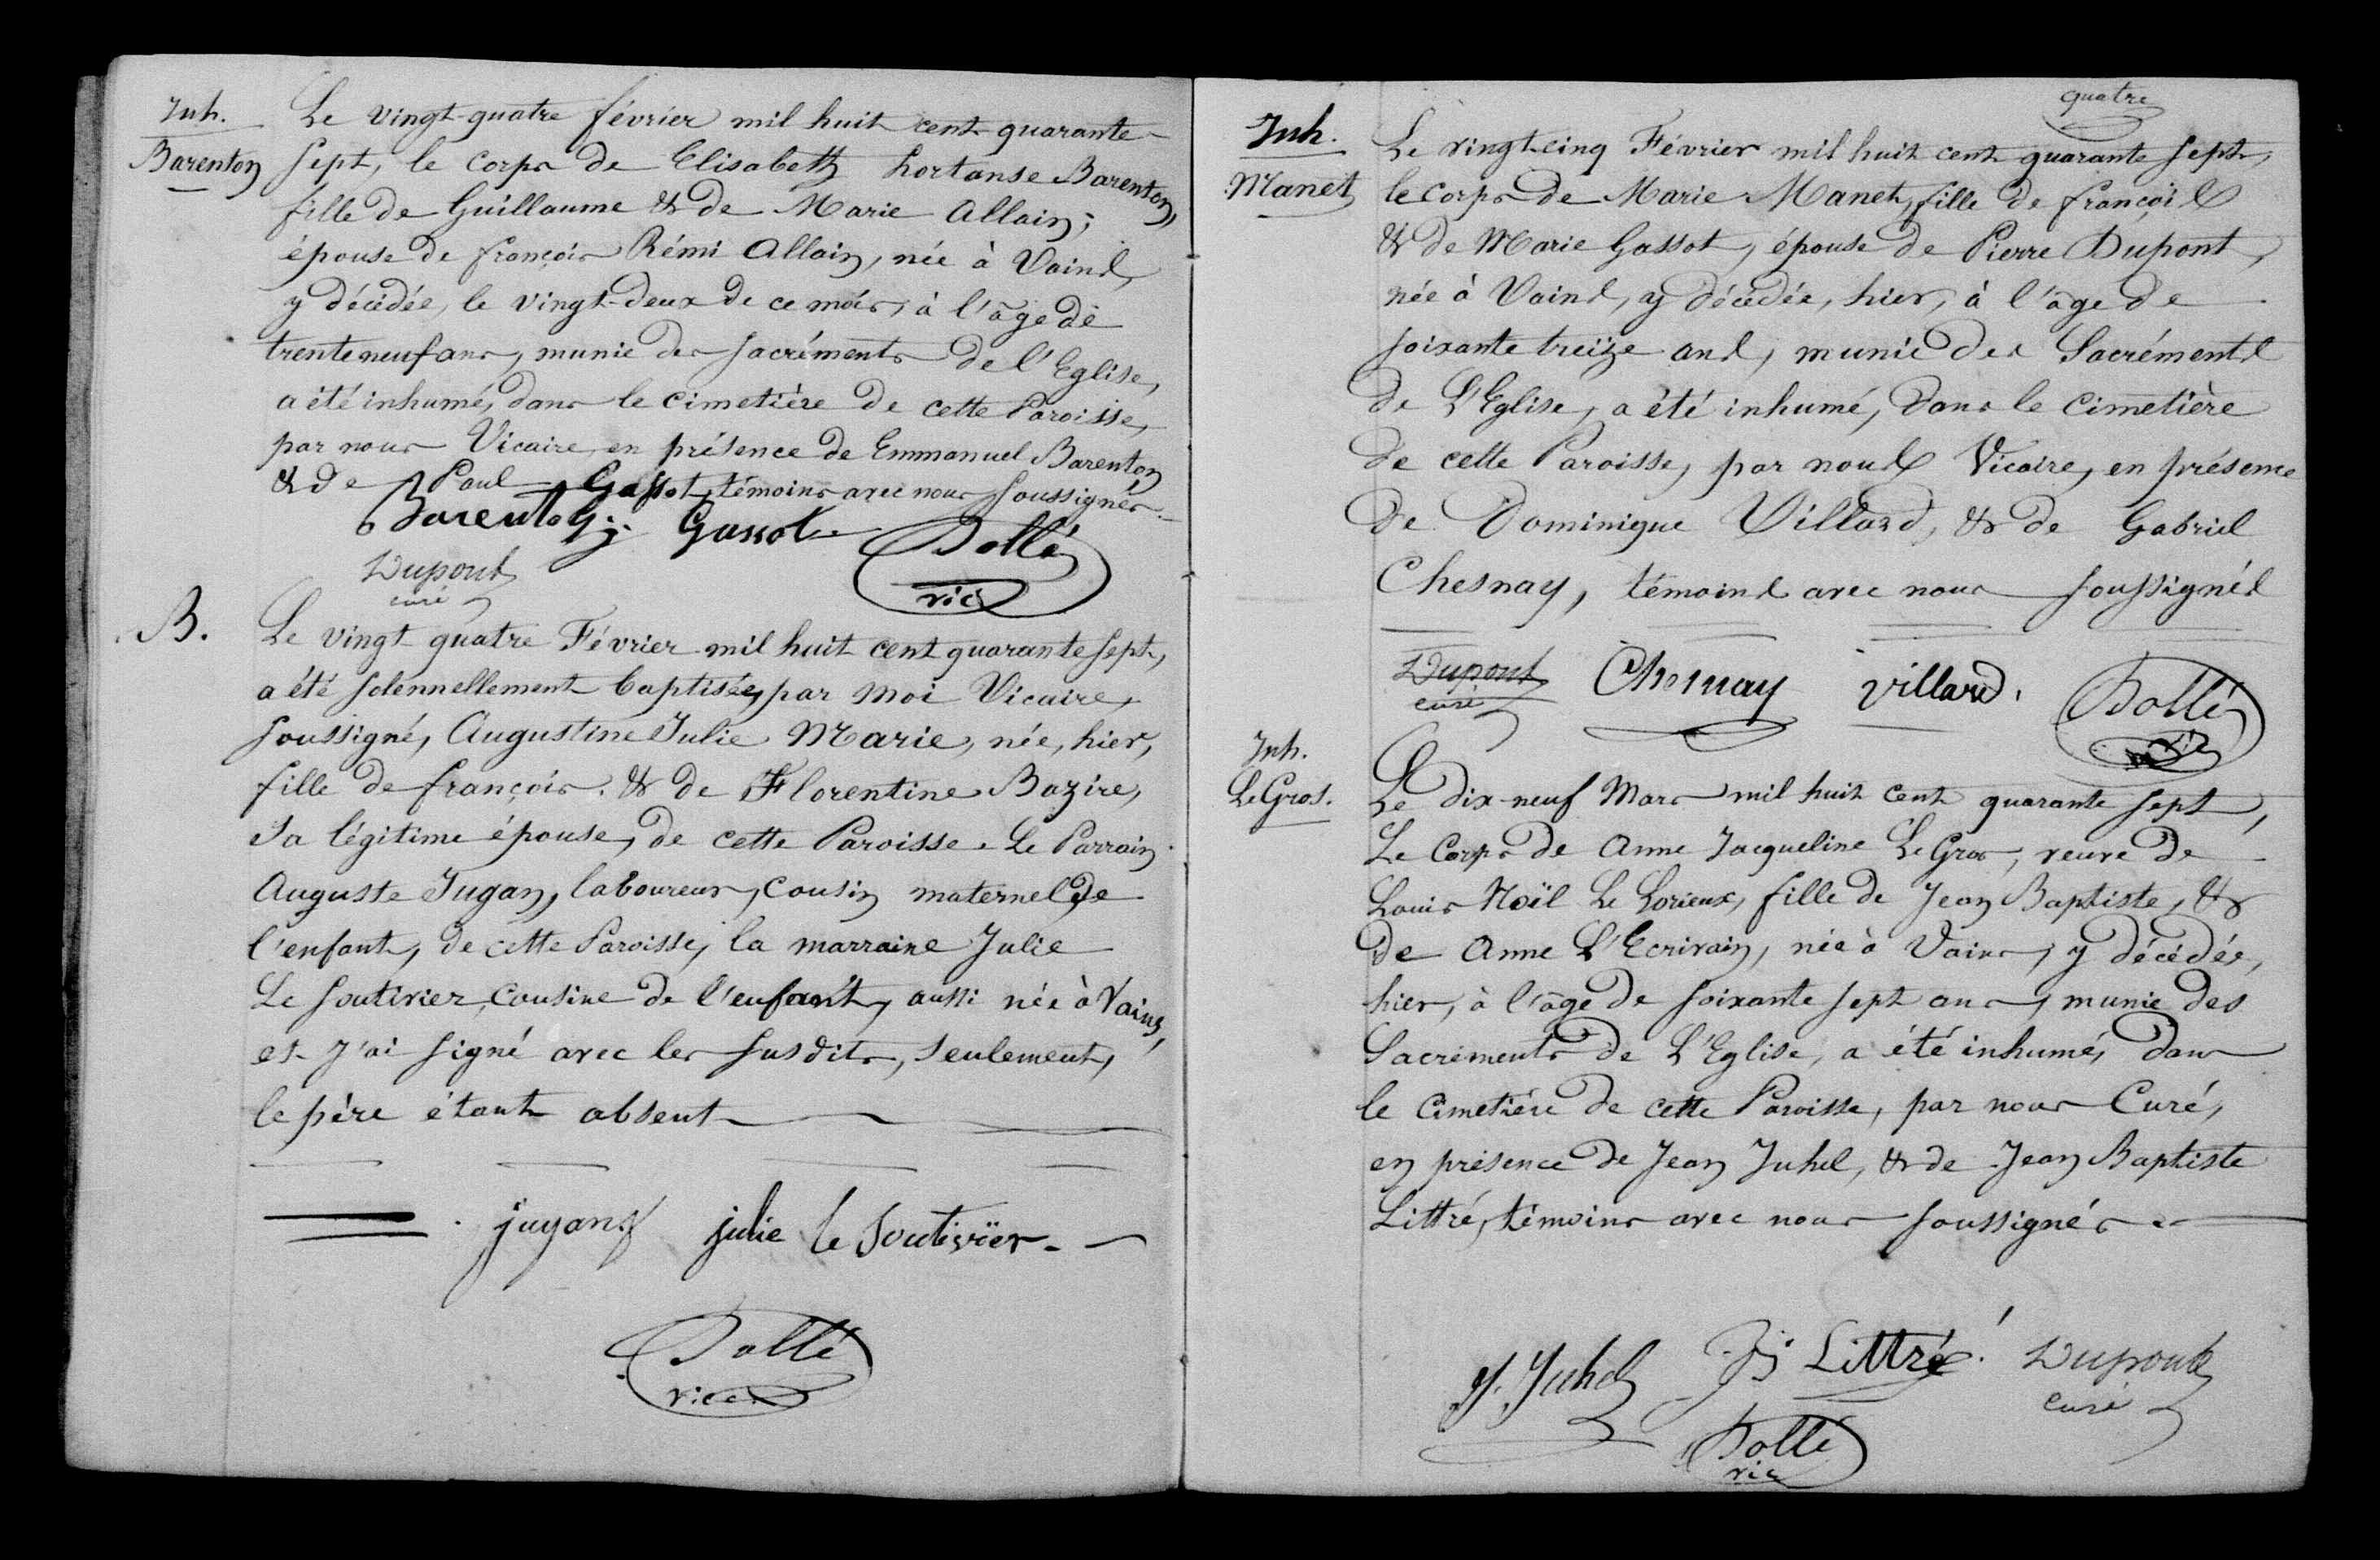 Inh.
Barenton
Le vingt-quatre février mil huit cent quarante
sept, le corps de Elisabeth hortanse Barenton,
fille de Guillaume & de Marie Allain;
épouse de françois Rémi Allain, née à Vains,
y décédée, le vingt-deux de ce mois, à l'âge de
trente neuf ans, munie des sacréments de l'Eglise,
a été inhumé, dans le cimetière de cette Paroisse,
par nous Vicaire, en présence de Emmanuel Barenton
& de Paul Gassot, témoins avec nous soussignés.
Barenton Gassot Dollé
Dupont
curé vic
B.
Le vingt quatre Février mil huit cent quarante sept,
a été solennellement baptisée, par moi Vicaire,
soussigné, Augustine Julie Marie, née, hier,
fille de françois & de Florentine Bazire,
sa légitime épouse, de cette Paroisse. Le Parrain
Auguste Jugan, laboureur, cousin maternel de
l'enfant, de cette Paroisse, la marraine Julie
Le Soutivier, cousine de l'enfant, aussi née à Vains,
et j'ai signé avec les susdits, seulement,
le père étant absent
jugan julie le Soutivier
Dollé
vic
Inh.
Manet
quatre
Le vingt-cinq Février mil huit cent quarante sept,
le corps de Marie Manet, fille de françois
& de Marie Gassot, épouse de Pierre Dupont,
née à Vains, y décédée, hier, à l'âge de
soixante treize ans, munie des Sacréments
de L'Eglise, a été inhumé, dans le cimetière
de cette Paroisse, par nous Vicaire, en présence
de Dominique Villard, & de Gabriel
Chesnay, témoins avec nous soussignés
Dupont Chesnay villard. Dollé
curé vic
Inh.
LeGros.
Le dix-neuf Mars mil huit cent quarante sept,
Le Corps de Anne Jacqueline Le Gros, veuve de
Louis Noël Le Lorieux, fille de Jean Baptiste, &
de Anne L'Ecrivain, née à Vains, y décédée,
hier, à l'âge de soixante sept ans, munie des
Sacrements de L'Eglise, a été inhumé, dans
le Cimetière de cette Paroisse, par nous Curé,
en présence de Jean Juhel, & de Jean Baptiste
Littré, témoins avec nous soussignés
J. Juhel Littré Dupont
curé
Dollé
vic